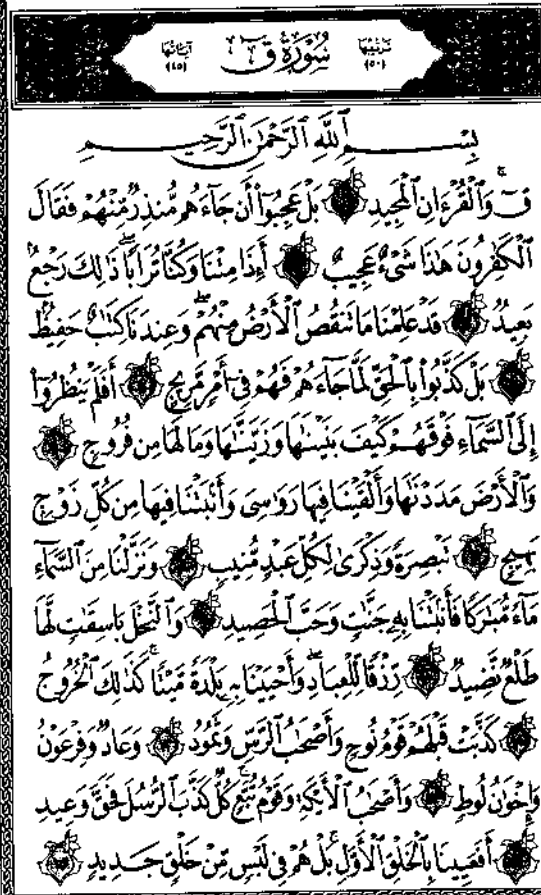 ترتيبها ٥٠ سُورَةُ قٓ آياتها ٤٥
بِسْمِ ٱللَّهِ ٱلرَّحْمَٰنِ ٱلرَّحِيمِ
قٓۚ وَٱلْقُرْءَانِ ٱلْمَجِيدِ بَلْ عَجِبُوٓا۟ أَن جَآءَهُم مُّنذِرٌ مِّنْهُمْ فَقَالَ
ٱلْكَٰفِرُونَ هَٰذَا شَىْءٌ عَجِيبٌ أَءِذَا مِتْنَا وَكُنَّا تُرَابًا ۖ ذَٰلِكَ رَجْعٌۢ
بَعِيدٌ قَدْ عَلِمْنَا مَا تَنقُصُ ٱلْأَرْضُ مِنْهُمْ ۖ وَعِندَنَا كِتَٰبٌ حَفِيظٌۢ
بَلْ كَذَّبُوا۟ بِٱلْحَقِّ لَمَّا جَآءَهُمْ فَهُمْ فِىٓ أَمْرٍ مَّرِيجٍ أَفَلَمْ يَنظُرُوٓا۟
إِلَى ٱلسَّمَآءِ فَوْقَهُمْ كَيْفَ بَنَيْنَٰهَا وَزَيَّنَّٰهَا وَمَا لَهَا مِن فُرُوجٍ
وَٱلْأَرْضَ مَدَدْنَٰهَا وَأَلْقَيْنَا فِيهَا رَوَٰسِىَ وَأَنۢبَتْنَا فِيهَا مِن كُلِّ زَوْجٍۭ
بَهِيجٍ تَبْصِرَةً وَذِكْرَىٰ لِكُلِّ عَبْدٍ مُّنِيبٍ وَنَزَّلْنَا مِنَ ٱلسَّمَآءِ
مَآءً مُّبَٰرَكًا فَأَنۢبَتْنَا بِهِۦ جَنَّٰتٍ وَحَبَّ ٱلْحَصِيدِ وَٱلنَّخْلَ بَاسِقَٰتٍ لَّهَا
طَلْعٌ نَّضِيدٌ رِّزْقًا لِّلْعِبَادِ ۖ وَأَحْيَيْنَا بِهِۦ بَلْدَةً مَّيْتًا ۚ كَذَٰلِكَ ٱلْخُرُوجُ
كَذَّبَتْ قَبْلَهُمْ قَوْمُ نُوحٍ وَأَصْحَٰبُ ٱلرَّسِّ وَثَمُودُ وَعَادٌ وَفِرْعَوْنُ
وَإِخْوَٰنُ لُوطٍ وَأَصْحَٰبُ ٱلْأَيْكَةِ وَقَوْمُ تُبَّعٍ ۚ كُلٌّ كَذَّبَ ٱلرُّسُلَ فَحَقَّ وَعِيدِ
أَفَعَيِينَا بِٱلْخَلْقِ ٱلْأَوَّلِ ۚ بَلْ هُمْ فِى لَبْسٍ مِّنْ خَلْقٍ جَدِيدٍ